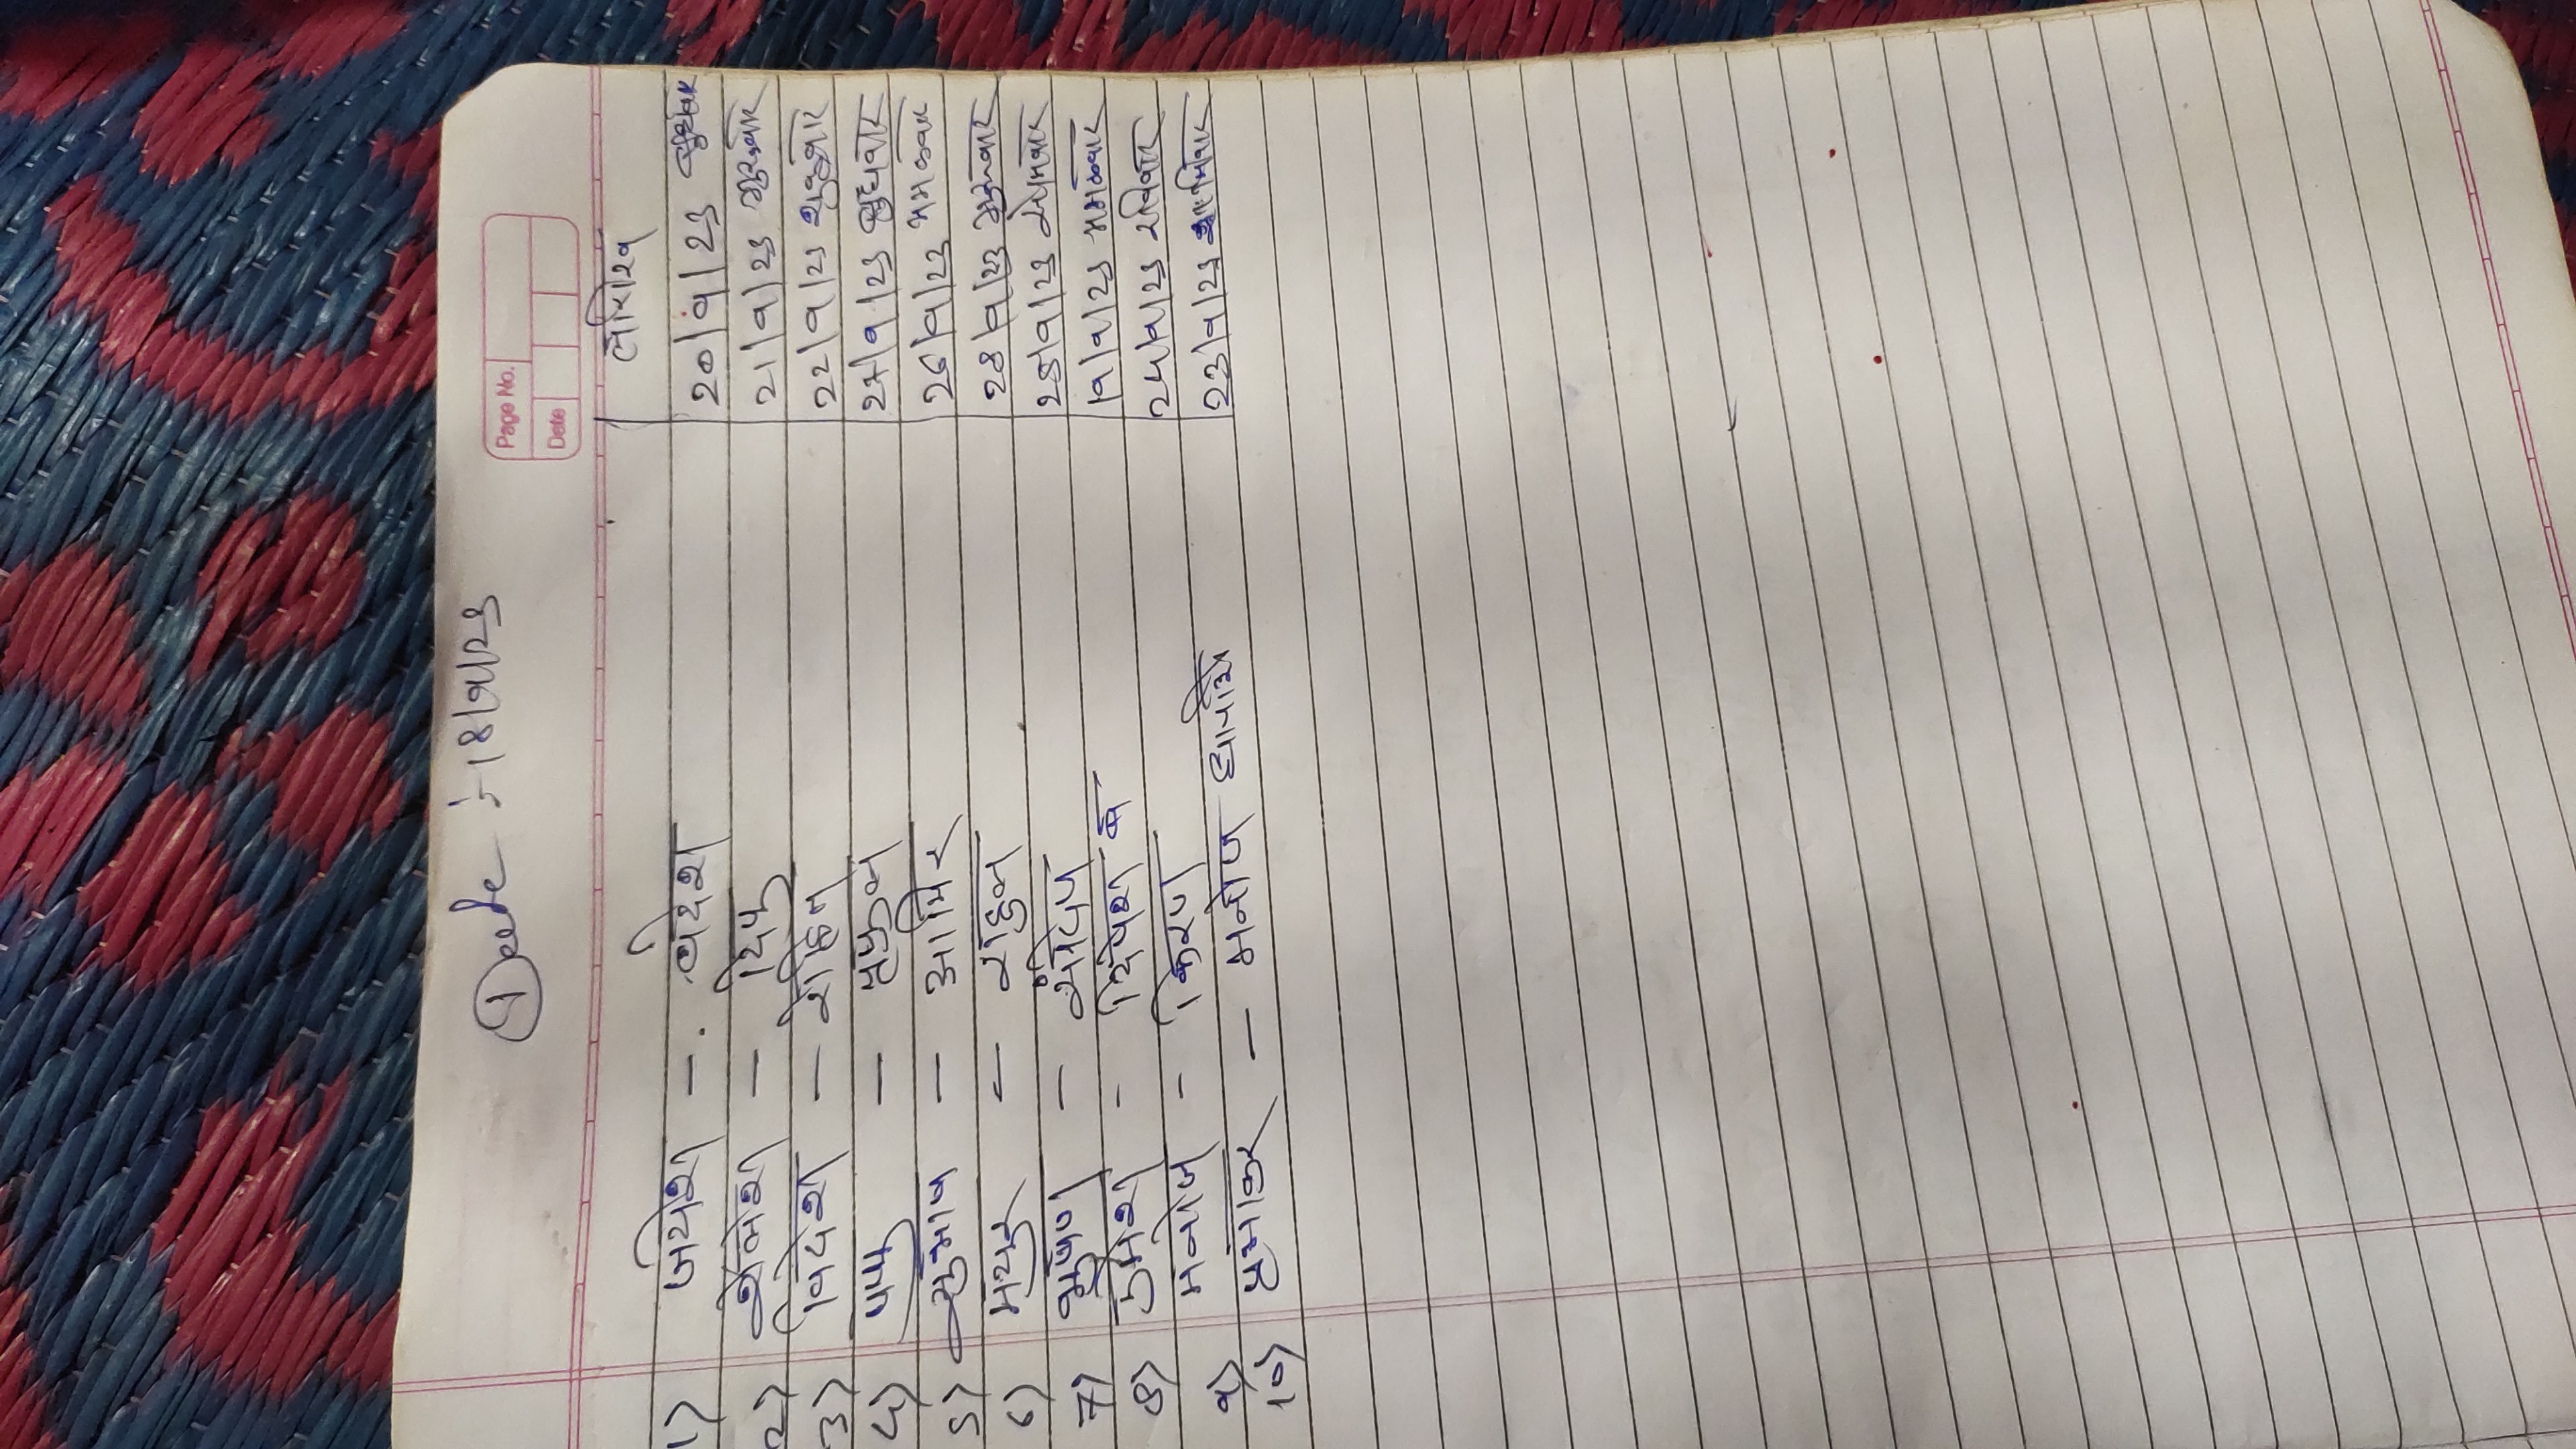 Date :- 18/9/23
Page No.
Date
तारीख
1) जयेश - वंदेश 20/9/23 बुधवार
2) शैलेश - दिपु 21/9/23 गुरुवार
3) विदेश - रोहित 22/9/23 शुक्रवार
4) पप्पु - प्रफुल 27/9/23 बुधवार
5) सुभाष - आमिर 26/9/23 मंगळवार
6) मयुर - राहुल 28/9/23 गुरुवार
7) भुषण - संदिप 25/9/23 सोमवार
8) उमेश - दिपेश के 19/9/23 मंगळवार
9) मनोज - किरण 24/9/23 रविवार
10) प्रभाकर - मनोज 23/9/23 शनिवार